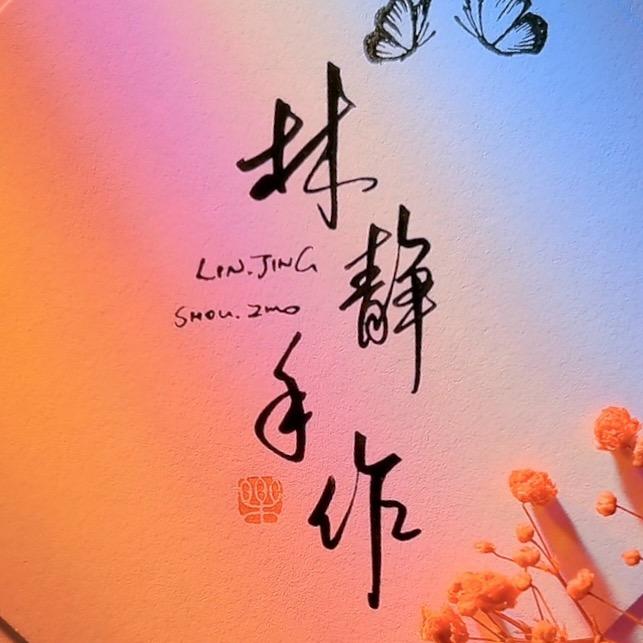 林静手作
LIN.JING
SHOU.ZUO